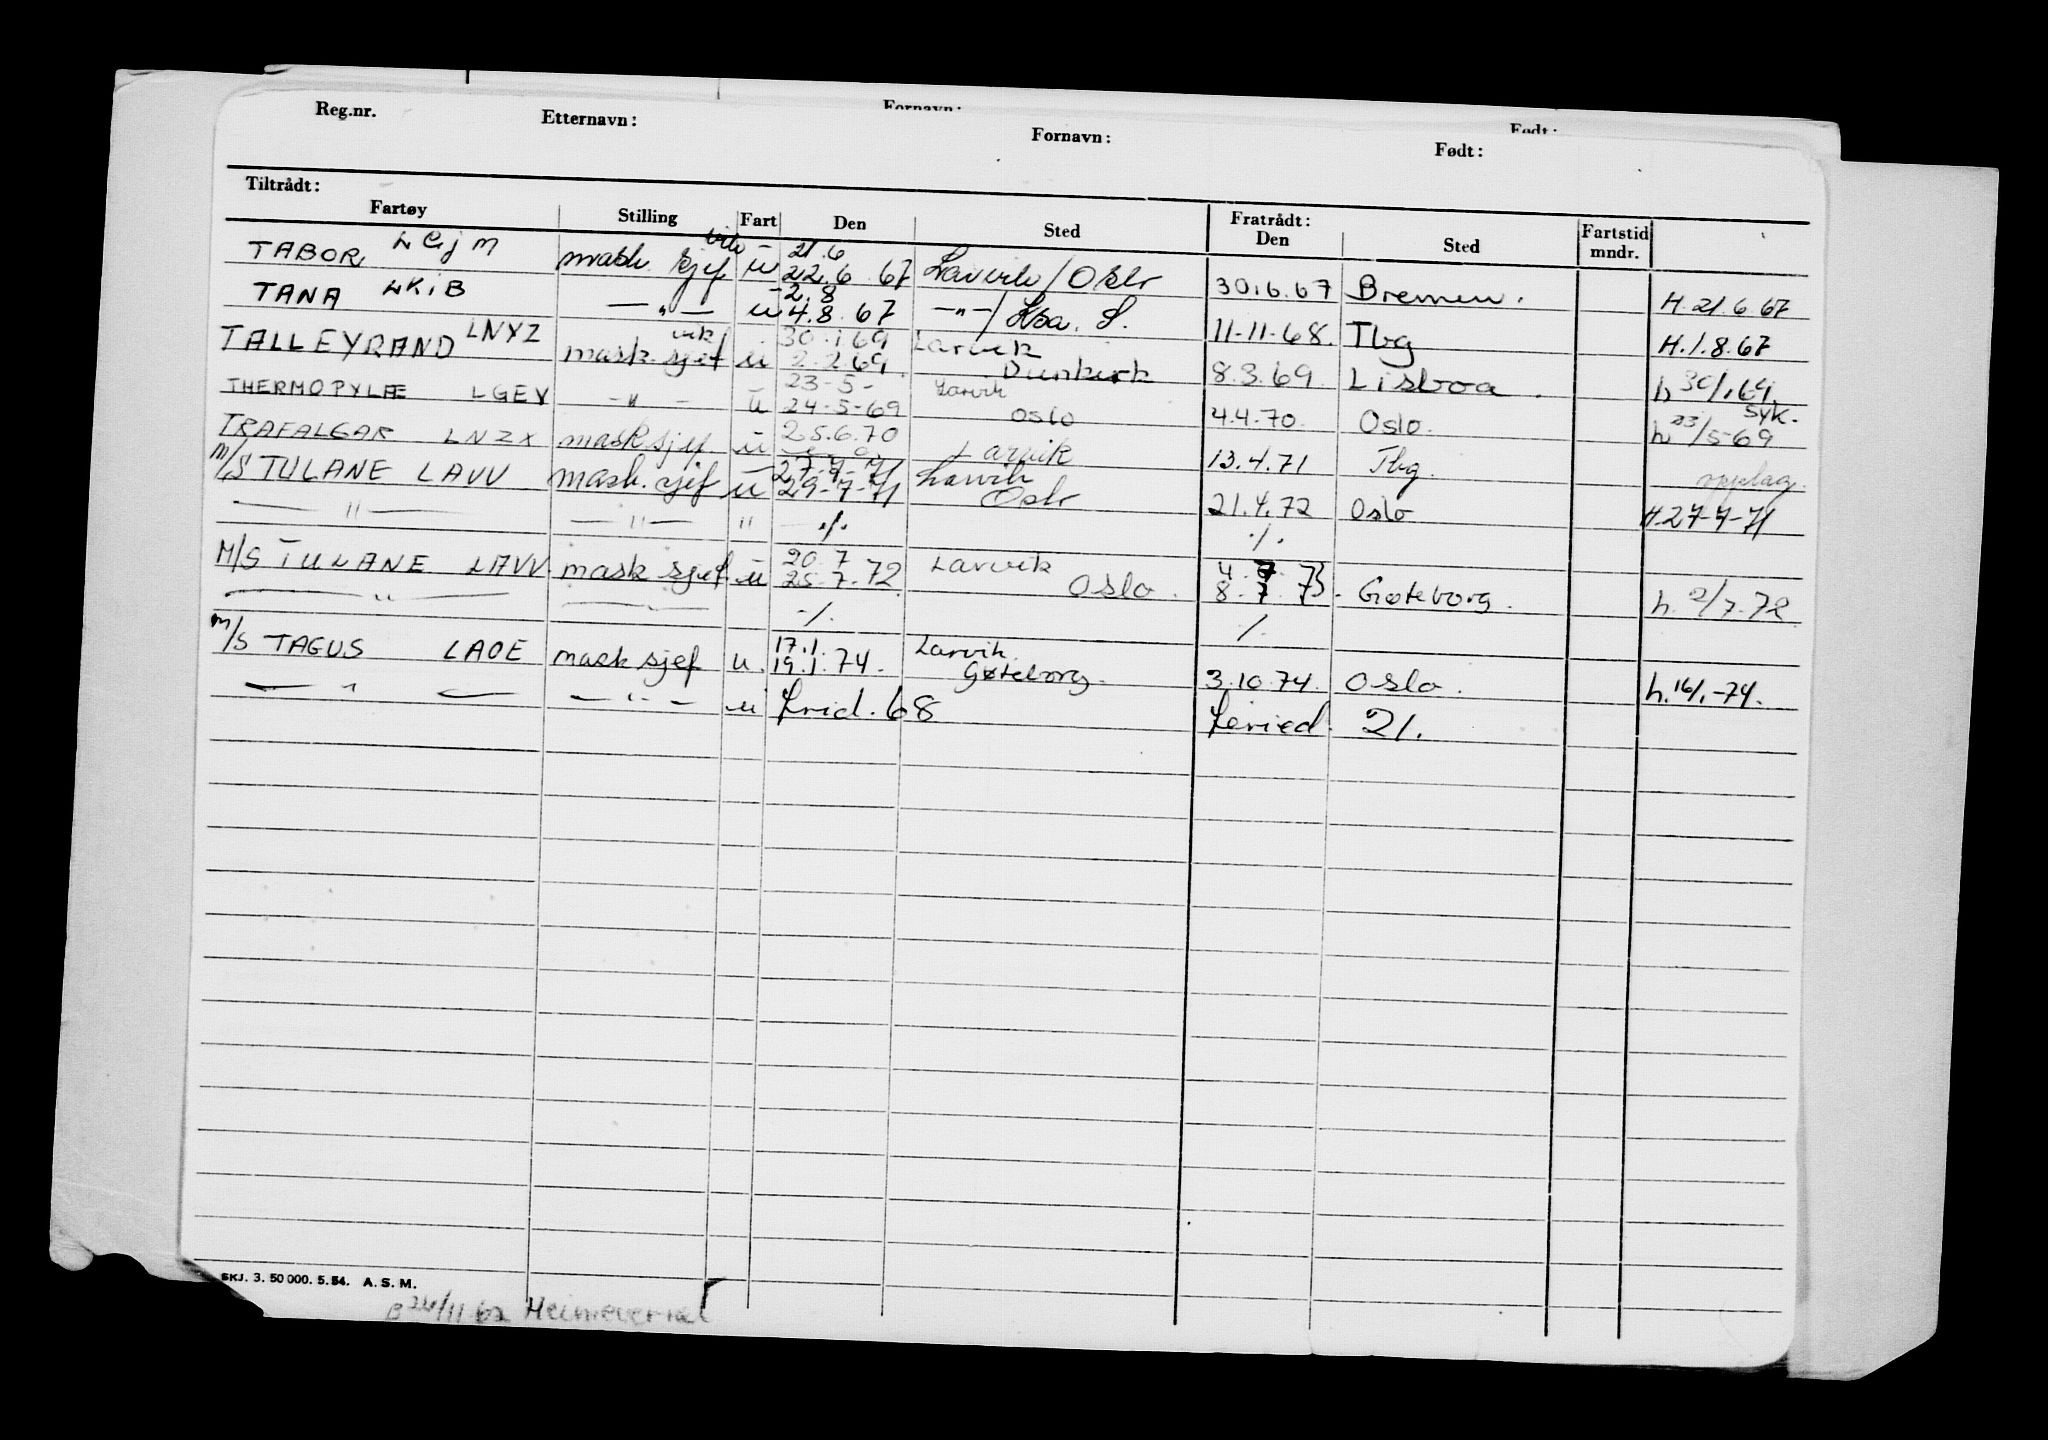 Fornavn: Født:
Reg.nr. Etternavn: Fornavn: Født:
Tiltrådt: Fratrådt:
Fartøy Stilling Fart Den Sted Den Sted Fartstid mndr.
TABOR LCjM mask. sjef vik u 21.6 22.6.67 Larvik/Oslo 30.6.67 Bremen. H.21.6.67
TANA LKiB —"— u 2.8 4.8.67 —"—/Hba. S. 11-11-68. Tbg H.1.8.67
TALLEYRAND LNYZ mask. sjef vik u 30.1.69 2.2.69. Larvik Dunkirk 8.3.69 Lisboa. h 30/1.69.
THERMOPYLÆ LGEV -"- u 23-5- 24-5-69 Larvik Oslo 4.4.70. Oslo. Syk. h 23/5-69
TRAFALGAR LNZX mask sjef. u 25.6.70 Larvik 13.4.71 Tbg. opplag.
M/S TULANE LAVV mask. sjef u 27-7-71 29-7-71 Larvik Oslo 21.4.72 Oslo H.27-7-71
—"— —"— " ./. ./.
M/S TULANE LAVV mask sjef u 20.7 25.7.72 Larvik Oslo. 4.7.73 8.7.73. Gøteborg. h. 2/7.72
—"— —"— ./. ./.
M/S TAGUS LAOE mask sjef u. 17.1. 19.1.74. Larvik. Gøteborg. 3.10.74. Oslo. h.16/1.-74.
—"— —"— u 68 21.
SKJ. 3. 50 000. 5. 54. A. S. M.
B 24/11 62 Heimevernet